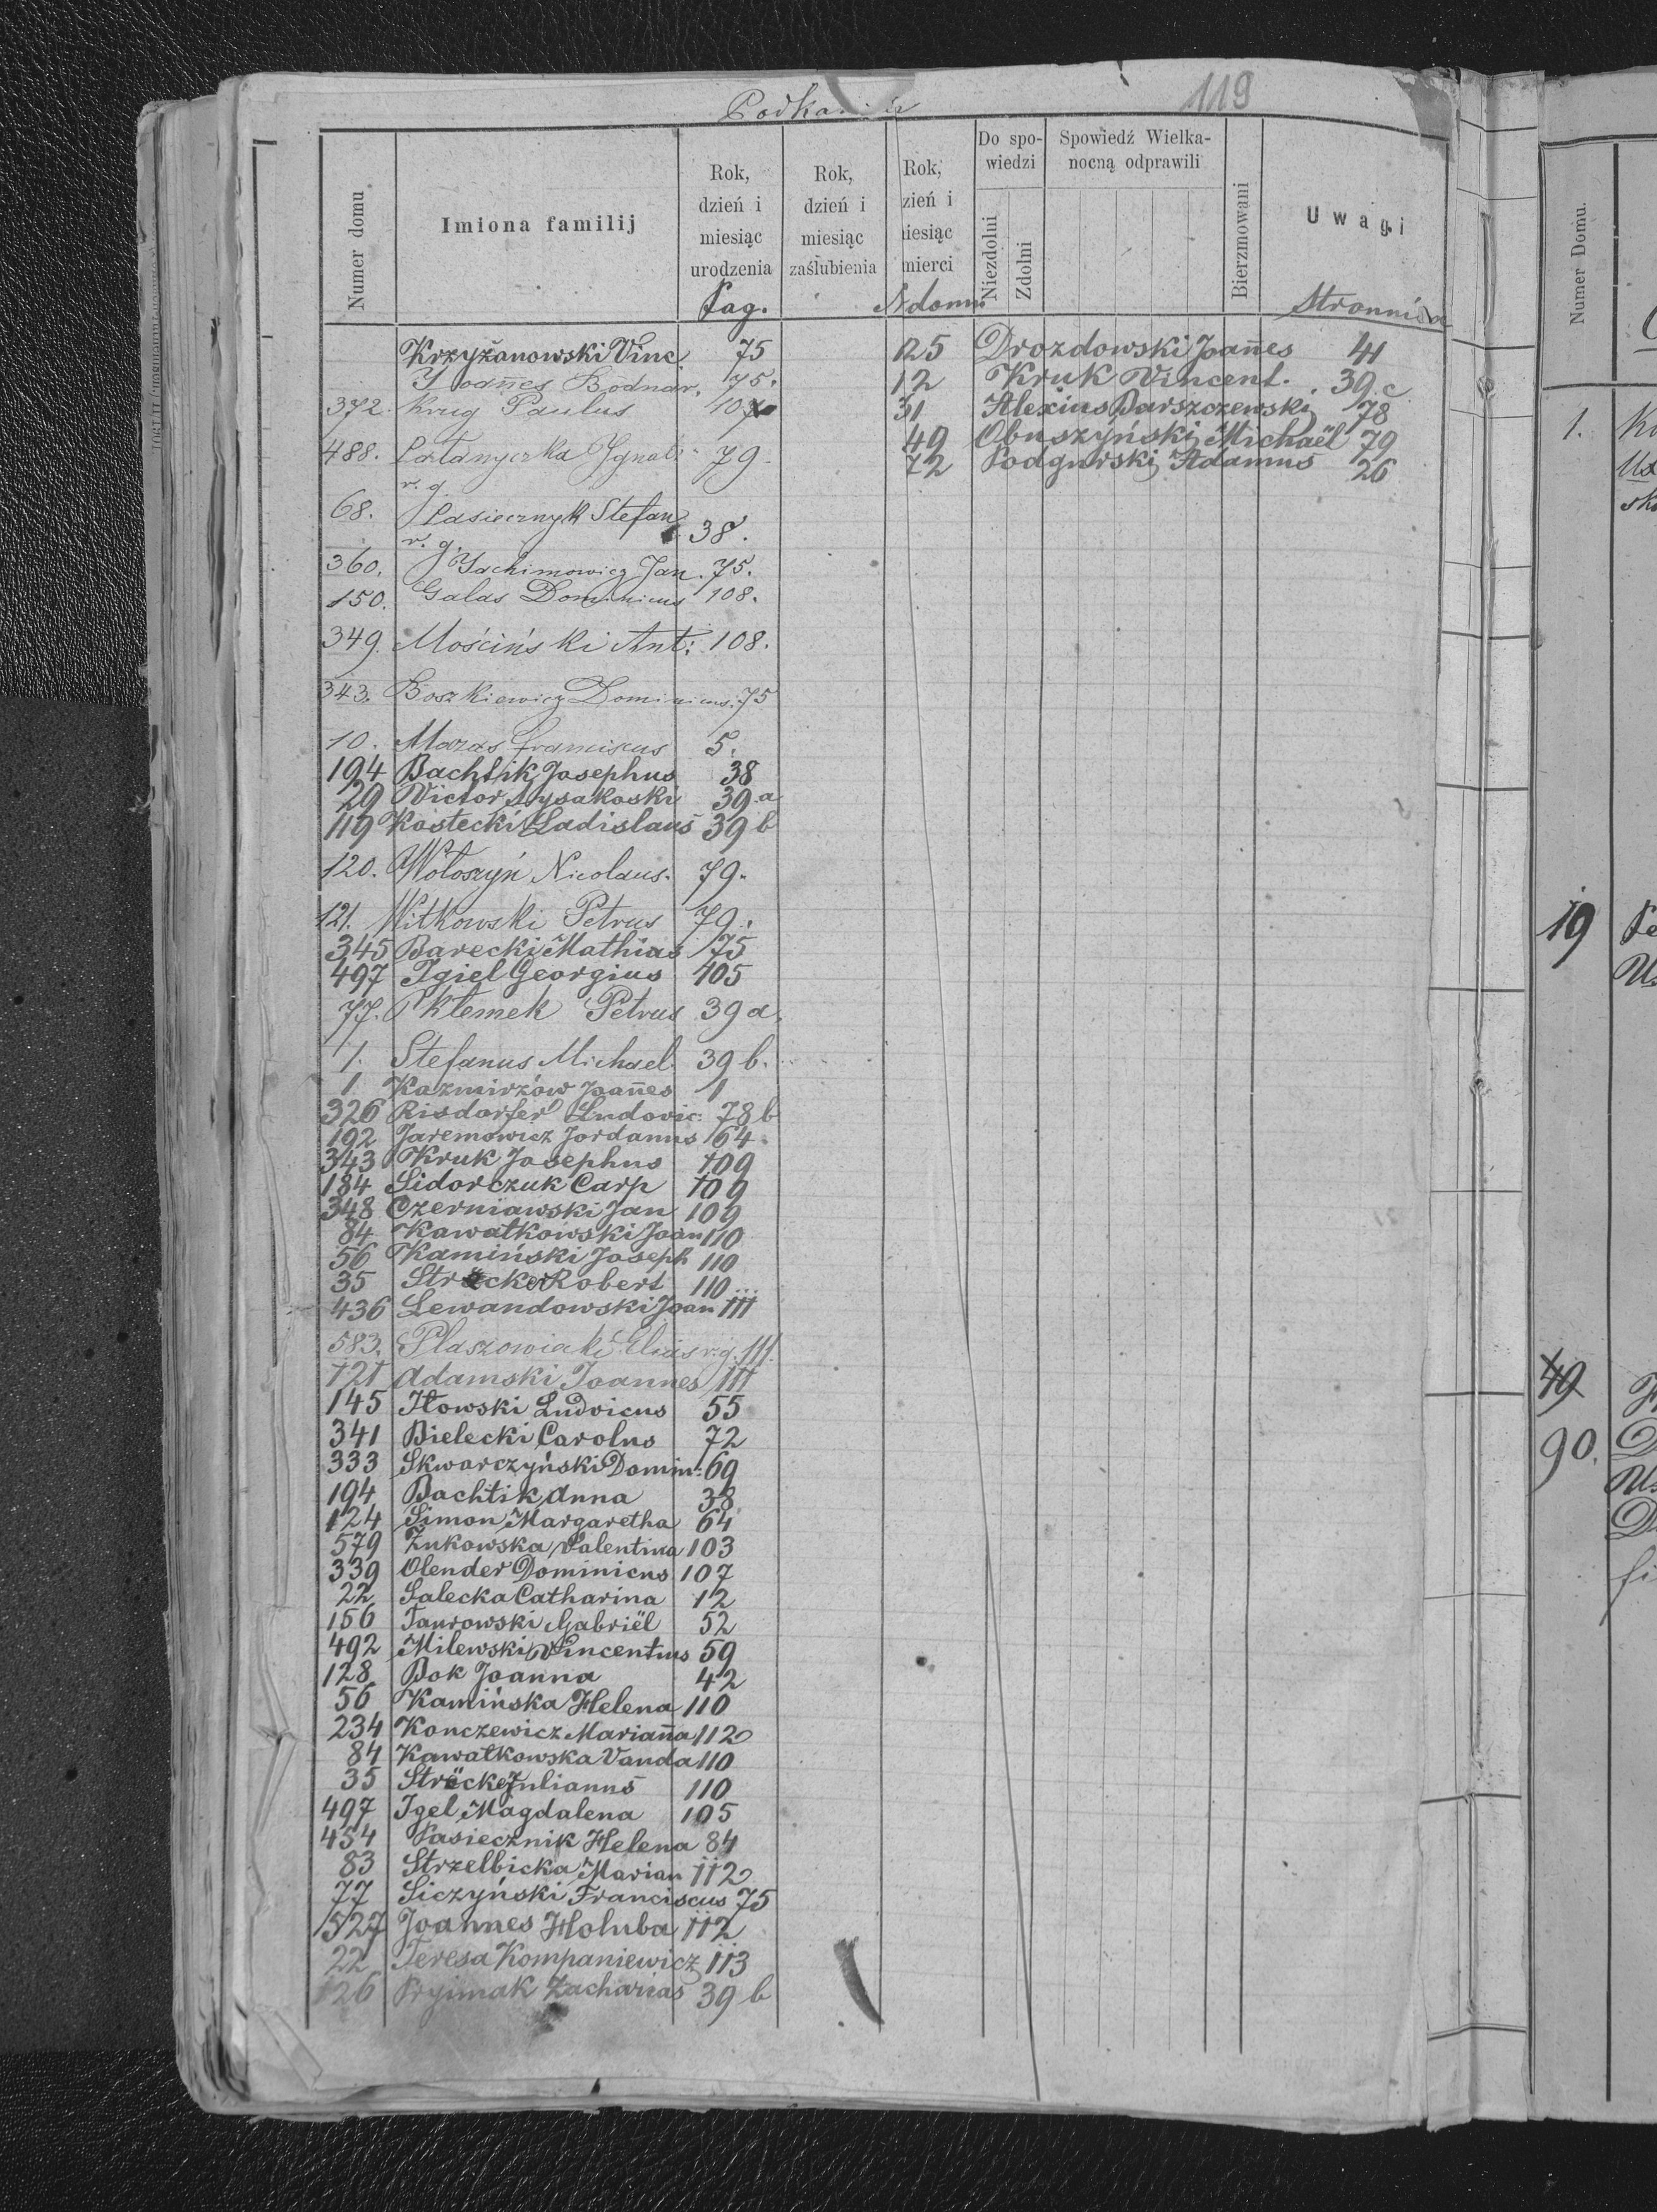 Podkamień 119
Numer domu
Imiona familij
Rok, dzień i miesiąc urodzenia
Rok, dzień i miesiąc zaślubienia
Rok, zień i iesiąc mierci
Do spowiedzi
Niezdolni
Zdolni
Spowiedź Wielkanocną odprawili
Bierzmowani
Uwagi
Pag. N domu Stronnica
Krzyżanowski Vinc 75
Joañes Bodnar. 75.
372. Krug Paulus 107
488. Patanyczka Ignat. 79
r. g.
68. Pasiecznyk Stefan 38.
r. g.
360. Jachimowicz Jan. 75.
150. Galas Dominicus 108.
349. Mościński Ant: 108.
343. Boszkiewicz Dominicus. 75
10. Mazas Franciscus 5.
194 Bachtik Josephus 38
29 Victor Łysakoski 39.a
119 Kostecki Ladislaus 39 b
120. Wołoszyń Nicolaus. 79.
121. Witkowski Petrus 79.
345 Barecki Mathias 75
497 Igiel Georgius 105
77. Klemek Petrus 39 a.
1. Stefanus Michael 39 b.
1. Kazmirzów Joañes 1
326 Risdorfer Ludovic: 78 b
192 Jaremowicz Jordanus 64.
343 Kruk Josephus 109
184 Sidorczuk Carp 109
348 Czerniawski Jan 109
84 Kawałkowski Joan 110
56 Kamiński Joseph 110
35 Ströcker Robert 110...
436 Lewandowski Joan 111
583. Płaszowiecki Elias r.g. 111.
121 Adamski Joannes 111
145 Iłowski Ludvicus 55
341 Bielecki Carolus 72
333 Skwarczyński Domin: 69
194 Bachtik Anna 38
124 Simon Margaretha 64
579 Żukowska Valentina 103
339 Olender Dominicus 107
22 Salecka Catharina 12
156 Taurowski Gabriël 52
492 Milewski Vincentius 59
128 Bok Joanna 42
56 Kamińska Helena 110
234 Konczewicz Mariaña 112
84 Kawałkowska Vanda 110
35 Ströcke Julianus 110
497 Igel Magdalena 105
454 Pasiecznik Helena 84
83 Strzelbicka Marian 112
77 Siczyński Franciscus 75
527 Joannes Hołuba 112
22 Teresa Kompaniewicz 113
126 Pryimak Zacharias 39 b
125 Drozdowski Joañes 41
12 Kruk Vincent. 39.c
31 Alexius Barszczewski 78
49 Obuszyński Michaël 79
72 Podgurski Adamus 26
Numer Domu.
1.
19
49
90.